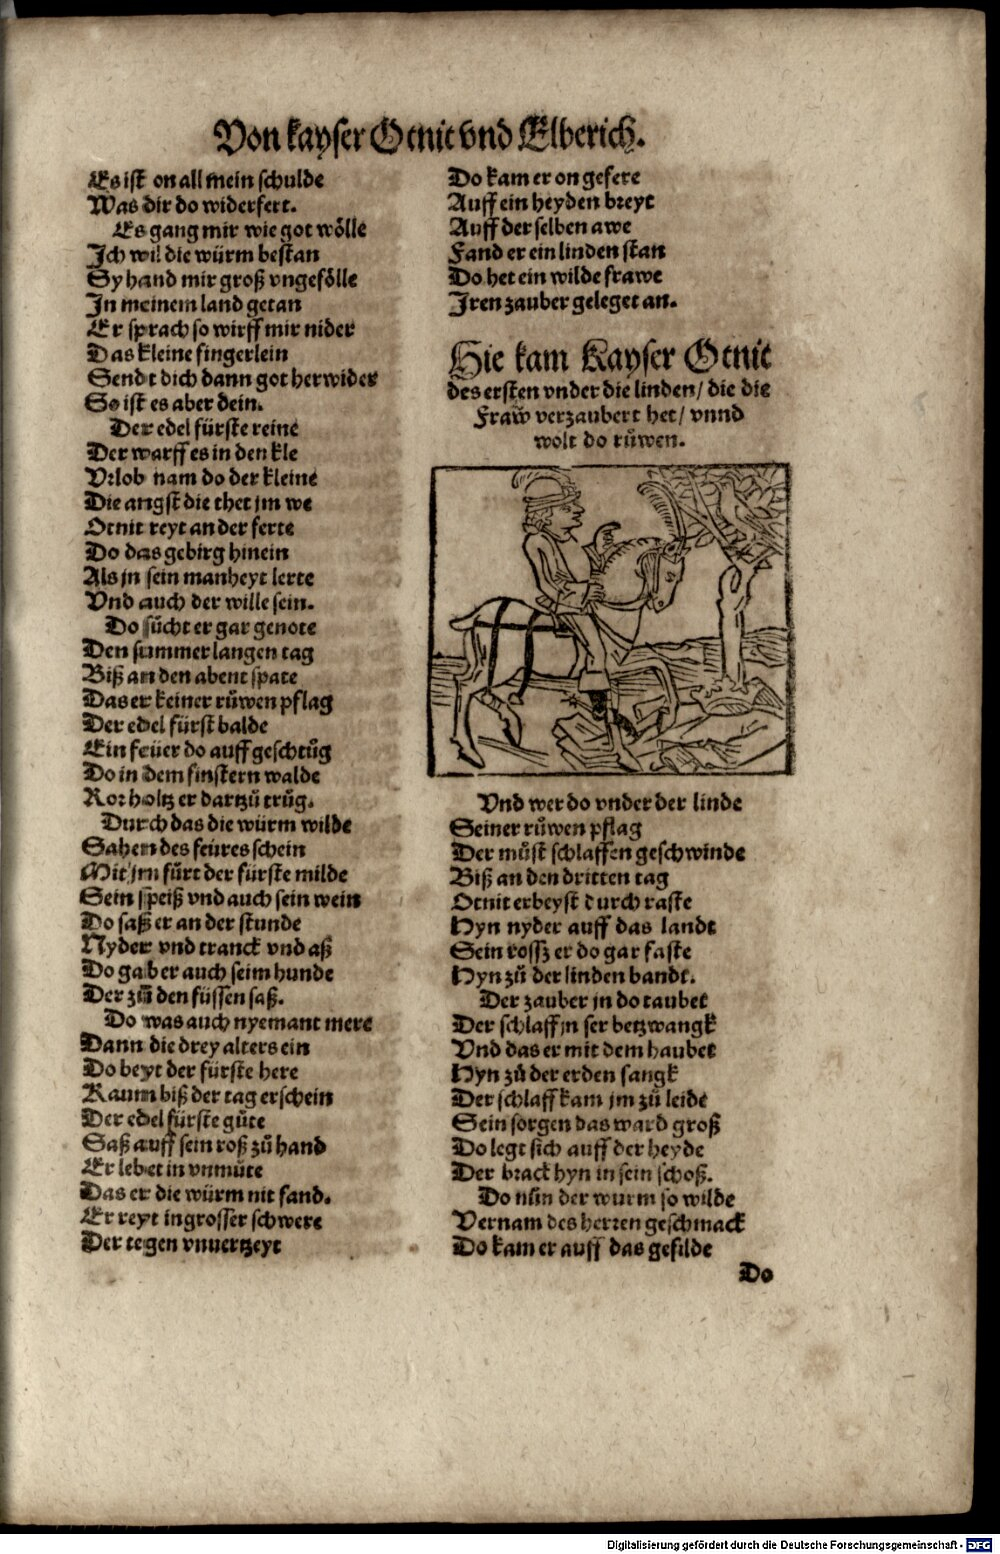 Von kayser Otnit vnd Elberich.
Es ist on all mein schulde
Was dir do widerfert.
Es gang mir wie got wölle
Ich wil die würm bestan
Sy hand mir groß vngefölle
In meinem land getan
Er sprach so wirff mir nider
Das kleine fingerlein
Sendt dich dann got herwider
So ist es aber dein.
Der edel fürste reine
Der warff es in den kle
Vrlob nam do der kleine
Die angst die thet jm we
Otnit reyt an der ferte
Do das gebirg hinein
Als jn sein manheyt lerte
Vnd auch der wille sein.
Do sücht er gar genote
Den summer langen tag
Biß an den abent spate
Das er keiner rüwen pflag
Der edel fürst balde
Ein feüer do auff geschlüg
Do in dem finstern walde
Ror holtz er dartzü trüg.
Durch das die würm wilde
Sahen des feüres schein
Mit jm fürt der fürste milde
Sein speiß vnd auch sein wein
Do saß er an der stunde
Nyder vnd tranck vnd aß
Do gab er auch seim hunde
Der zü den füssen saß.
Do was auch nyemant mere
Dann die drey alters ein
Do beyt der fürste here
Kaum biß der tag erschein
Der edel fürste güte
Saß auff sein roß zü hand
Er lebet in vnmüte
Das er die würm nit fand.
Er reyt in grosser schwere
Der tegen vnuertzeyt
Do kam er on gefere
Auff ein heyden breyt
Auff der selben awe
Fand er ein linden stan
Do het ein wilde frawe
Iren zauber geleget an.
Hie kam Kayser Otnit
des ersten vnder die linden/ die die
Fraw verzaubert het/ vnnd
wolt do rüwen.
Vnd wer do vnder der linde
Seiner rüwen pflag
Der müst schlaffen geschwinde
Biß an den dritten tag
Otnit erbeyst durch raste
Hyn nyder auff das landt
Sein rossz er do gar faste
Hyn zü der linden bandt.
Der zauber jn do taubet
Der schlaff jn ser betzwangk
Vnd das er mit dem haubet
Hyn zü der erden sangk
Der schlaff kam jm zü leide
Sein sorgen das ward groß
Do legt sich auff der heyde
Der brack hyn in sein schoß.
Do nun der wurm so wilde
Vernam des herren geschmack
Do kam er auff das gefilde
Do
Digitalisierung gefördert durch die Deutsche Forschungsgemeinschaft - DFG